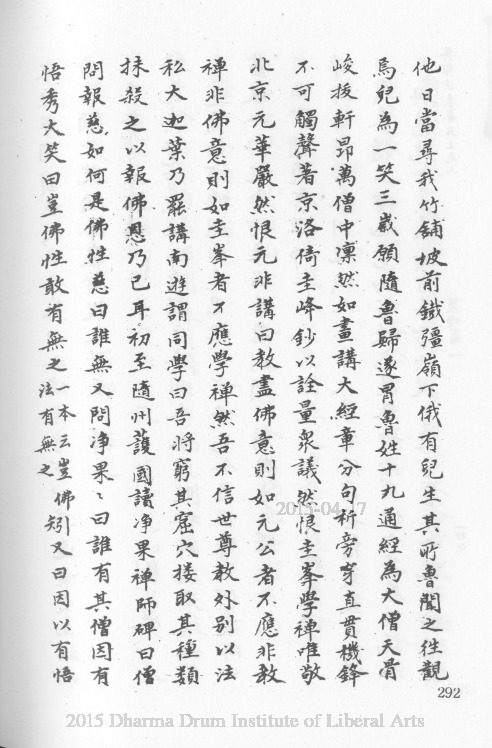 他日當尋我竹鋪坡前鐵彊嶺下俄有兒生其所魯聞之往觀
焉兒為一笑三歲願隨魯歸遂冒魯姓十九通經為大僧天骨
峻拔軒昂萬僧中凛然如畫講大經章分句析旁穿直貫機鋒
不可觸聲著京洛倚圭峰鈔以詮量衆議然恨圭峯學禪唯敬
北京元華嚴然恨元非講曰教盡佛意則如元公者不應非教
禪非佛意則如圭峯者不應學禪然吾不信世尊教外別以法
私大迦葉乃罷講南遊謂同學曰吾將窮其窟穴搂取其種類
抹殺之以報佛恩乃已耳初至隨州護國讀净果禪師碑曰僧
問報慈如何是佛性慈曰誰無又問净果〻曰誰有其僧因有
悟秀大笑曰豈佛性敢有無之一本云豈佛法有無之矧又曰因以有悟
292
2013-04-17
2015 Dharma Drum Institute of Liberal Arts